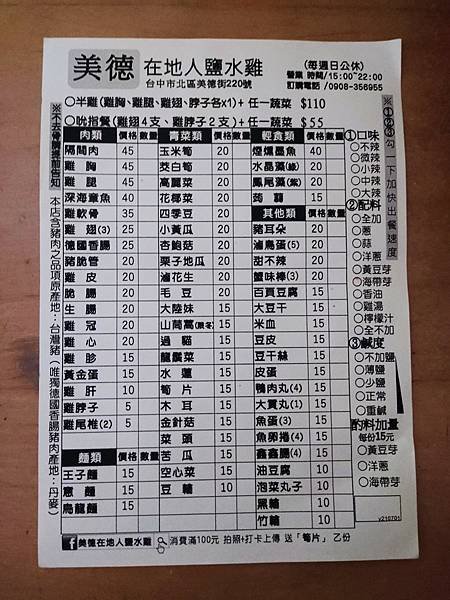 美德 在地人鹽水雞
(每週日公休)
營業 時間/15:00~22:00
台中市北區美德街220號
訂購電話/0908-356955
○半雞(雞胸、雞腿、雞翅、脖子各x1)+ 任一蔬菜 $110
○吮指餐(雞翅4支、雞脖子2支)+任一蔬菜 $55
※不去骨請提前告知
本店含豬肉之品項原產地:台灣豬(唯獨德國香腸豬肉產地:丹麥)
※①②③勾一下加快出餐速度
肉類 價格 數量
隔間肉 45
雞胸 45
雞腿 45
深海章魚 40
雞軟骨 35
雞翅(3) 25
德國香腸 25
豬脆管 20
雞皮 20
脆腸 20
生腸 20
雞冠 20
雞心 20
雞胗 15
黃金蛋 15
雞肝 10
雞脖子 5
雞尾椎(2) 5
麵類 價格 數量
王子麵 15
意麵 15
烏龍麵 15
青菜類 價格 數量
玉米筍 20
茭白筍 20
高麗菜 20
花椰菜 20
四季豆 20
小黃瓜 20
杏鮑菇 20
栗子地瓜 20
滷花生 20
毛豆 20
大陸妹 15
山茼萵 15
過貓 15
龍鬚菜 15
水蓮 15
筍片 15
木耳 15
金針菇 15
菜頭 15
苦瓜 15
空心菜 15
豆輪 10
輕食類 價格 數量
煙燻墨魚 40
水晶藻(綠) 20
鳳尾藻(紫) 20
蒟蒻 15
其他類 價格 數量
豬耳朵 20
滷鳥蛋(5) 20
甜不辣 20
蟹味棒(3) 20
百頁豆腐 15
大豆干 15
米血 15
豆皮 15
豆干絲 15
皮蛋 15
鴨肉丸(4) 15
大貢丸(1) 15
魚蛋(3) 15
魚卵捲(4) 15
鑫鑫腸(4) 15
油豆腐 10
泡菜丸子 10
黑輪 10
竹輪 10
①口味
○不辣
○微辣
○小辣
○中辣
○大辣
②配料
○全加
○蔥
○蒜
○洋蔥
○黃豆芽
○海帶芽
○香油
○雞湯
○檸檬汁
○全不加
③鹹度
○不加鹽
○薄鹽
○少鹽
○正常
○重鹹
酌料加量
每份15元
○黃豆芽
○洋蔥
○海帶芽
v210701
f 美德在地人鹽水雞 消費滿100元 拍照+打卡上傳 送「筍片」乙份